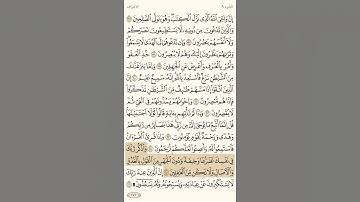 الجزء ٩ الأعراف
إِنَّ وَلِـِّۧيَ ٱللَّهُ ٱلَّذِي نَزَّلَ ٱلۡكِتَٰبَۖ وَهُوَ يَتَوَلَّى ٱلصَّٰلِحِينَ ١٩٦
وَٱلَّذِينَ تَدۡعُونَ مِن دُونِهِۦ لَا يَسۡتَطِيعُونَ نَصۡرَكُمۡ
وَلَآ أَنفُسَهُمۡ يَنصُرُونَ ١٩٧ وَإِن تَدۡعُوهُمۡ إِلَى ٱلۡهُدَىٰ لَا يَسۡمَعُواْۖ
وَتَرَىٰهُمۡ يَنظُرُونَ إِلَيۡكَ وَهُمۡ لَا يُبۡصِرُونَ ١٩٨ خُذِ ٱلۡعَفۡوَ
وَأۡمُرۡ بِٱلۡعُرۡفِ وَأَعۡرِضۡ عَنِ ٱلۡجَٰهِلِينَ ١٩٩ وَإِمَّا يَنزَغَنَّكَ
مِنَ ٱلشَّيۡطَٰنِ نَزۡغٞ فَٱسۡتَعِذۡ بِٱللَّهِۚ إِنَّهُۥ سَمِيعٌ عَلِيمٌ ٢٠٠ إِنَّ
ٱلَّذِينَ ٱتَّقَوۡاْ إِذَا مَسَّهُمۡ طَٰٓئِفٞ مِّنَ ٱلشَّيۡطَٰنِ تَذَكَّرُواْ
فَإِذَا هُم مُّبۡصِرُونَ ٢٠١ وَإِخۡوَٰنُهُمۡ يَمُدُّونَهُمۡ فِي ٱلۡغَيِّ ثُمَّ
لَا يُقۡصِرُونَ ٢٠٢ وَإِذَا لَمۡ تَأۡتِهِم بِـَٔايَةٖ قَالُواْ لَوۡلَا ٱجۡتَبَيۡتَهَاۚ
قُلۡ إِنَّمَآ أَتَّبِعُ مَا يُوحَىٰٓ إِلَيَّ مِن رَّبِّيۚ هَٰذَا بَصَآئِرُ مِن رَّبِّكُمۡ
وَهُدٗى وَرَحۡمَةٞ لِّقَوۡمٖ يُؤۡمِنُونَ ٢٠٣ وَإِذَا قُرِئَ ٱلۡقُرۡءَانُ
فَٱسۡتَمِعُواْ لَهُۥ وَأَنصِتُواْ لَعَلَّكُمۡ تُرۡحَمُونَ ٢٠٤ وَٱذۡكُر رَّبَّكَ
فِي نَفۡسِكَ تَضَرُّعٗا وَخِيفَةٗ وَدُونَ ٱلۡجَهۡرِ مِنَ ٱلۡقَوۡلِ بِٱلۡغُدُوِّ
وَٱلۡأٓصَالِ وَلَا تَكُن مِّنَ ٱلۡغَٰفِلِينَ ٢٠٥ إِنَّ ٱلَّذِينَ عِندَ رَبِّكَ
لَا يَسۡتَكۡبِرُونَ عَنۡ عِبَادَتِهِۦ وَيُسَبِّحُونَهُۥ وَلَهُۥ يَسۡجُدُونَۤ ۩ ٢٠٦
١٧٦